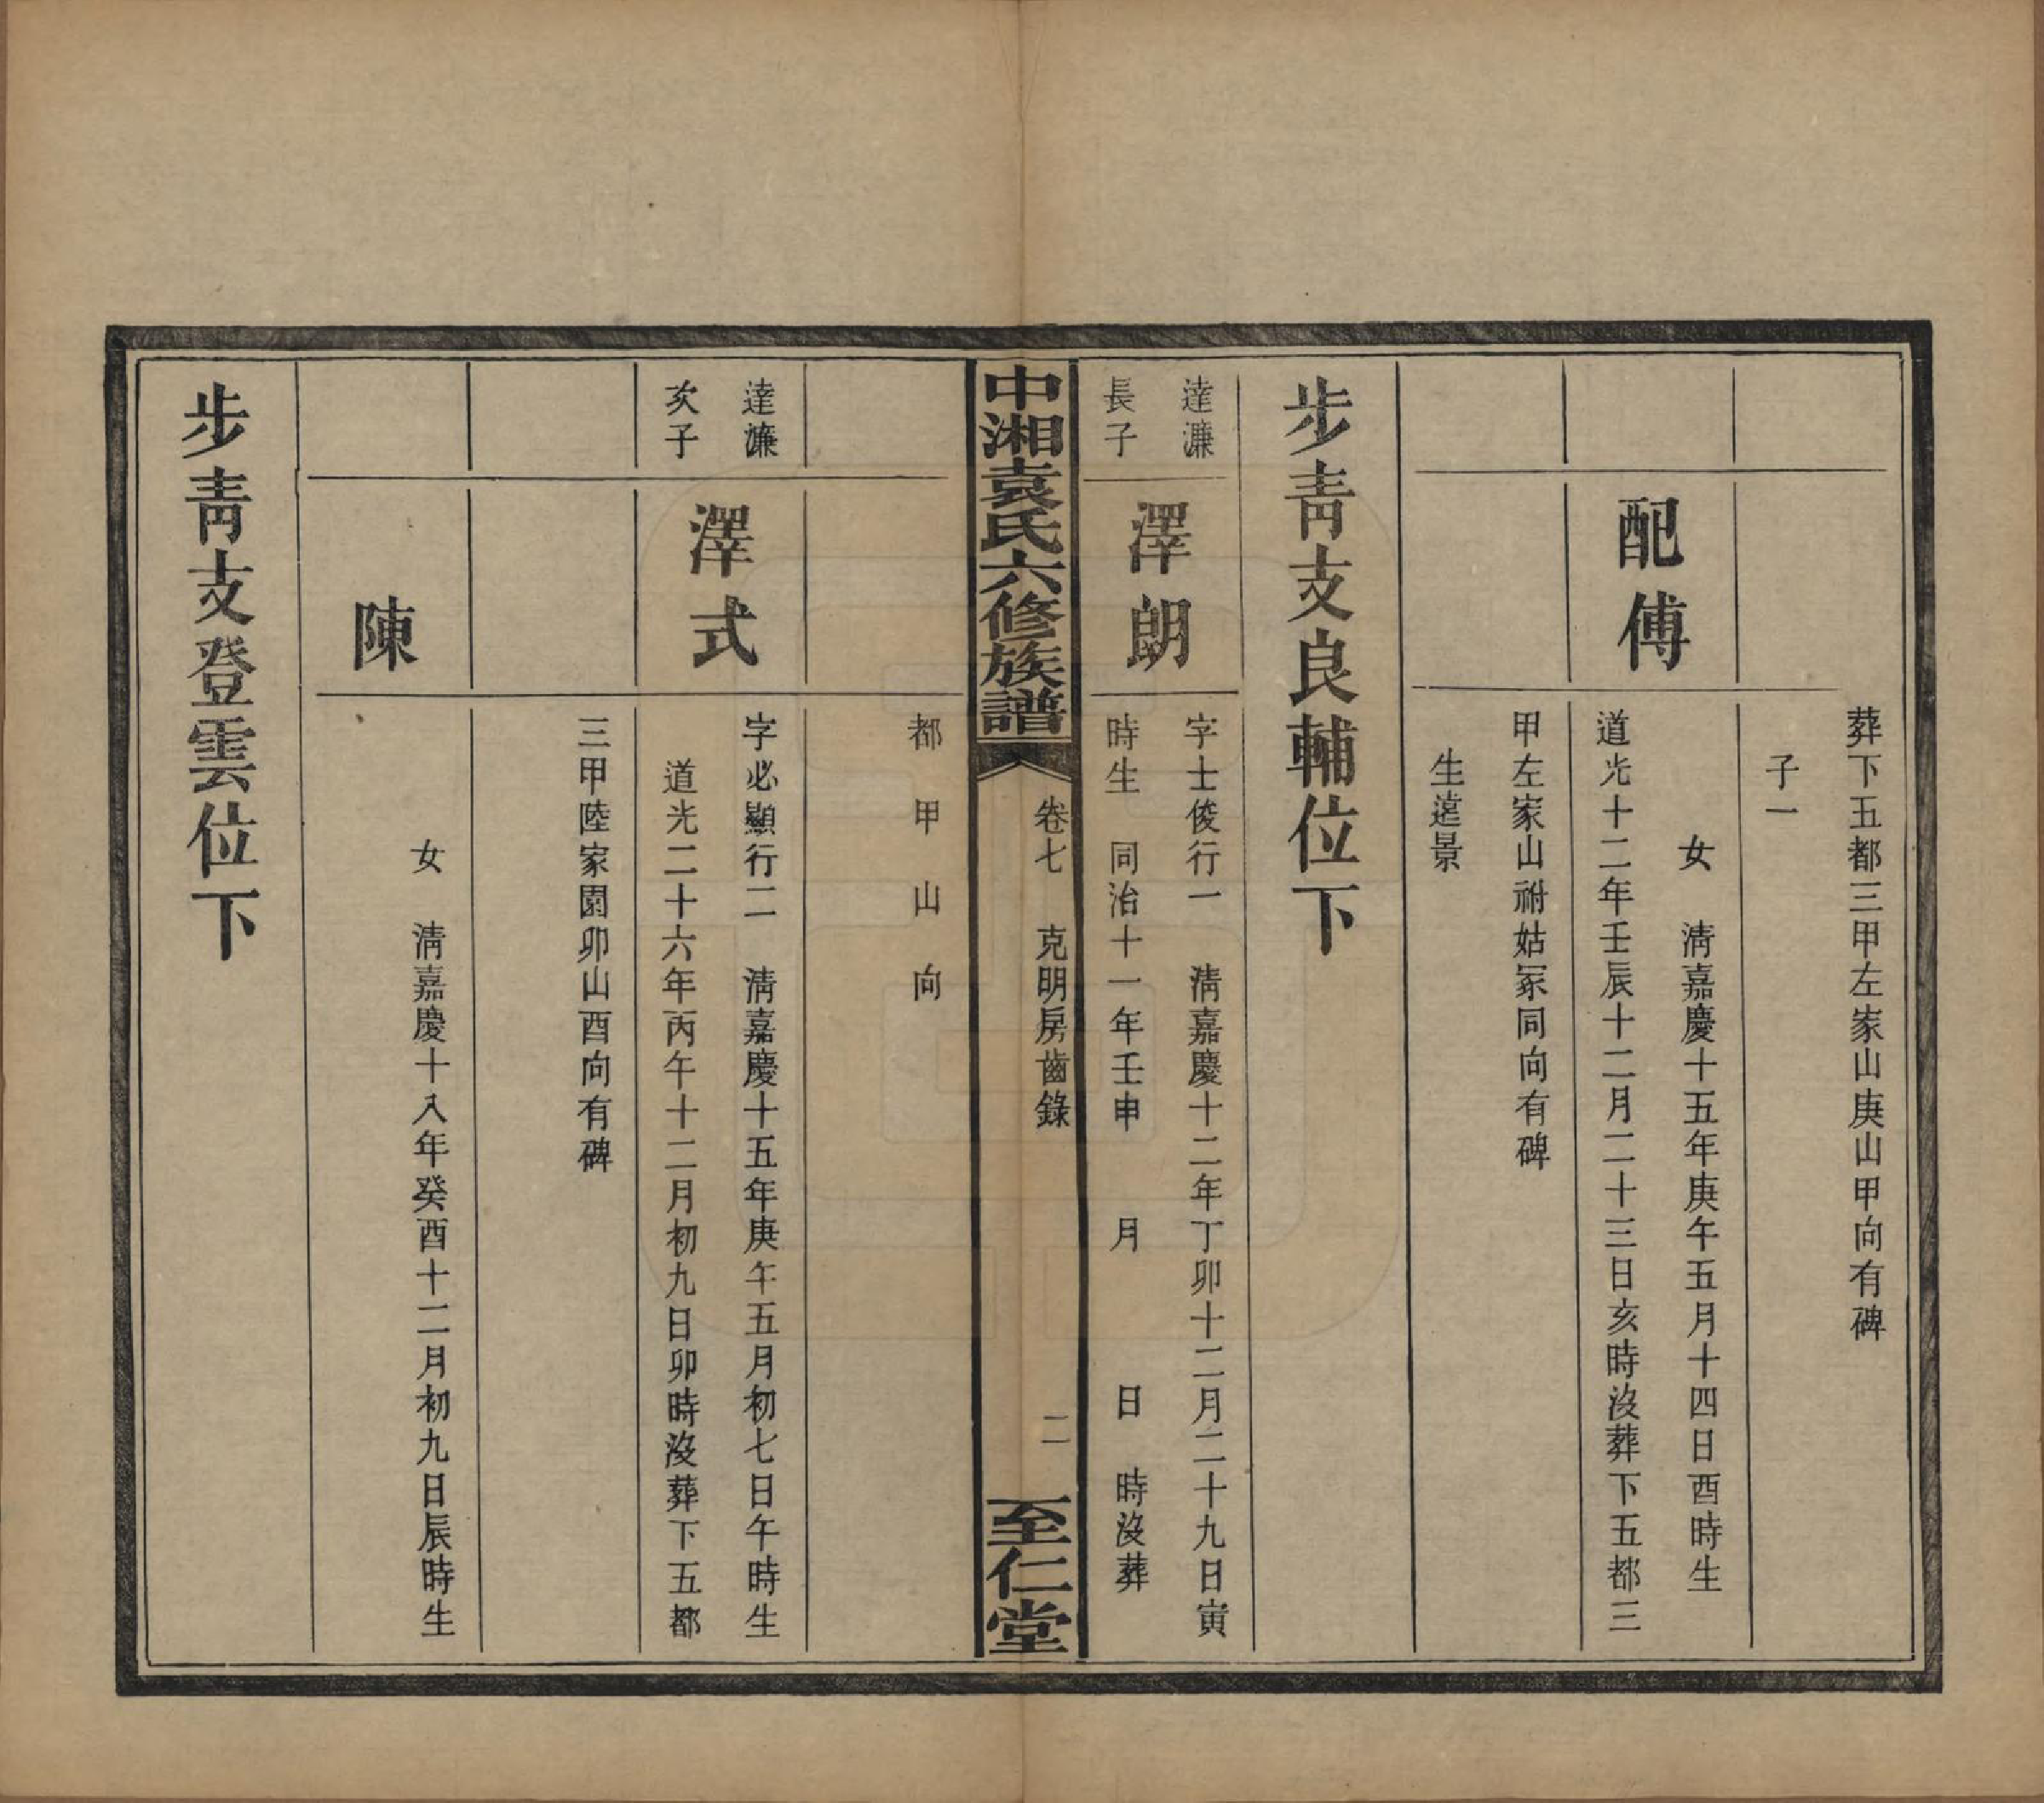 葬下五都三甲左家山庚山甲向有碑
子一
配傅
女 淸嘉慶十五年庚午五月十四日酉時生
道光十二年壬辰十二月二十三日亥時沒葬下五都三
甲左家山祔姑冢同向有碑
生遠景
步靑支良輔位下
達濂
長子
澤朗
字士俊行一 淸嘉慶十二年丁卯十二月二十九日寅
時生 同治十一年壬申 月 日 時沒葬
中湘袁氏六修族譜
卷七 克明房齒錄
二
至仁堂
都 甲 山 向
達濂
次子
澤式
字必顯行二 淸嘉慶十五年庚午五月初七日午時生
道光二十六年丙午十二月初九日卯時沒葬下五都
三甲陸家園卯山酉向有碑
陳
女 淸嘉慶十八年癸酉十二月初九日辰時生
步靑支登雲位下